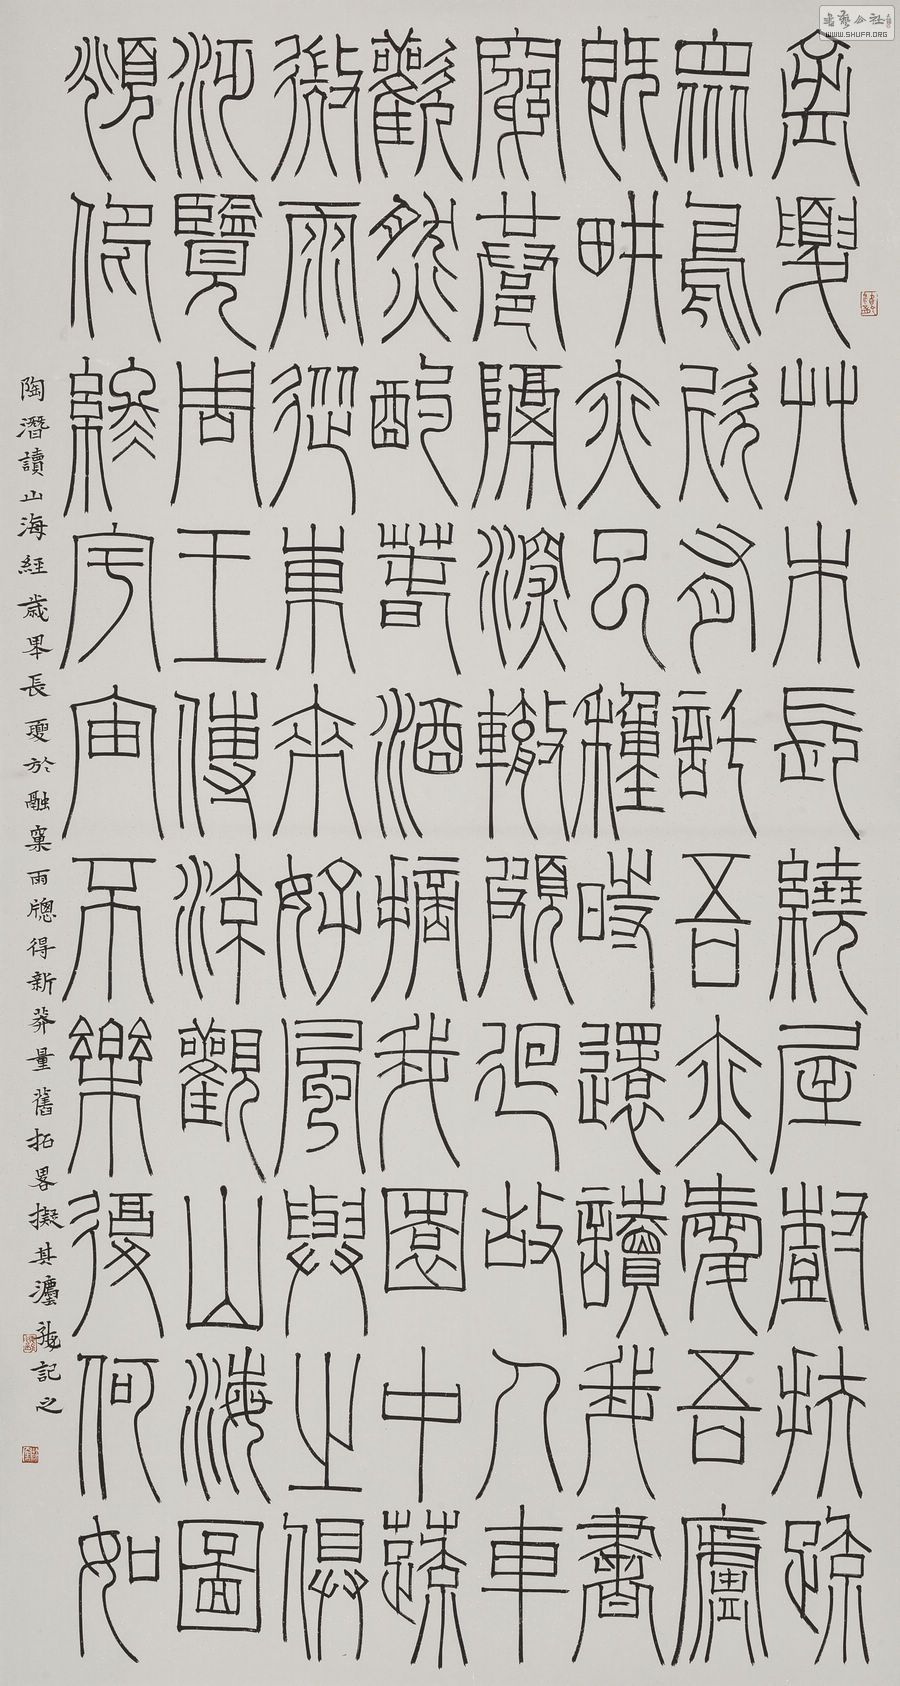 孟夏艸木長繞屋樹扶疏
眾鳥欣有託吾亦愛吾廬
既畊亦已種時還讀我書
窮巷隔深轍頗迴故人車
歡然酌春酒摘我園中蔬
微雨從東來好風與之俱
汎覽周王傳流觀山海圖
頫仰終宇宙不樂復何如
陶潛讀山海經歲畢長夏於融窠雨牕得新莽量舊拓畧擬其灋記之
书艺公社
WWW.SHUFA.ORG